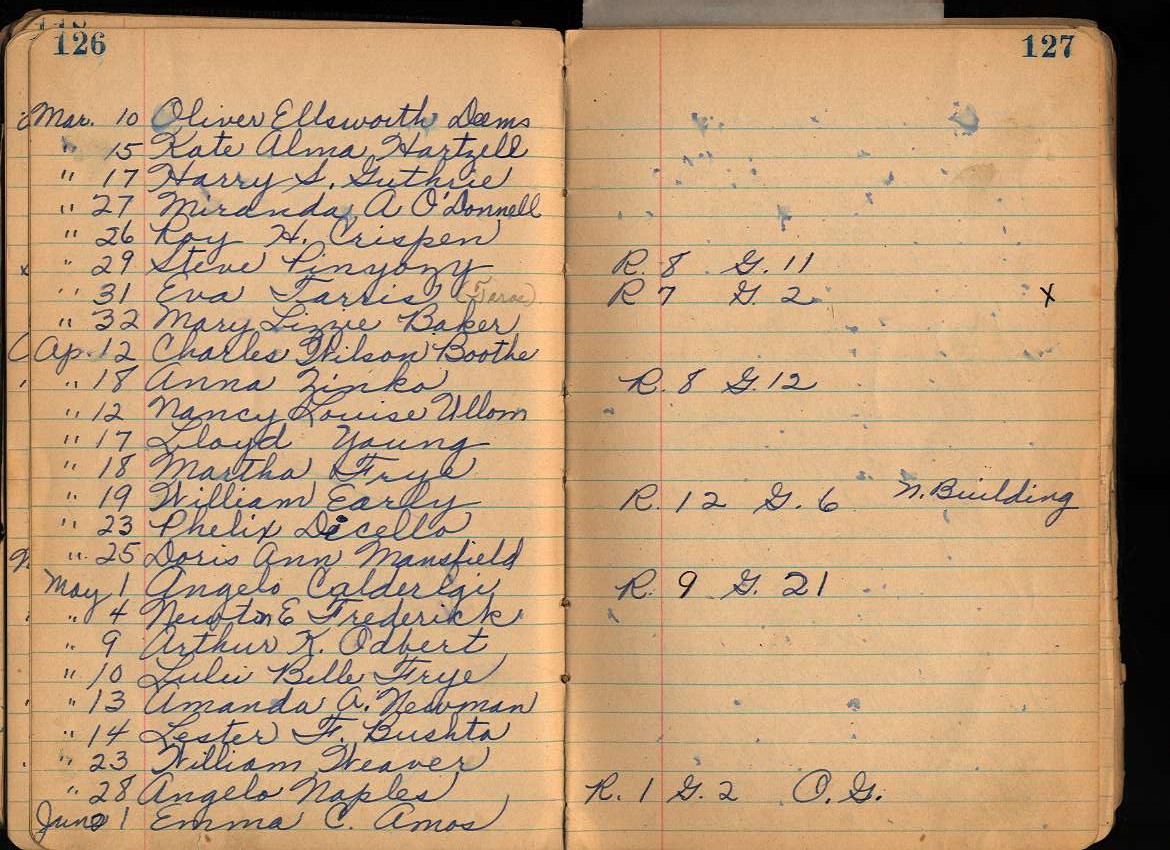 126 127
Mar. 10 Oliver Ellsworth Deems
" 15 Kate Alma Hartzell
" 17 Harry S. Guthrie
" 27 Miranda A O'Donnell
" 26 Roy H. Crispen
x " 29 Steve Pinyozy R. 8 G. 11
" 31 Eva Tarris R 7 G. 2 x
" 32 Mary Lizzie Baker
Ap. 12 Charles Wilson Boothe
" 18 Anna Zinko R. 8 G. 12
" 12 Nancy Louise Ullom
" 17 Lloyd Young
" 18 Martha Frye
" 19 William Early R. 12 G. 6 N. Building
" 23 Phelix Dicello
" 25 Doris Ann Mansfield
May 1 Angelo Calderigi R. 9 G. 21
" 4 Newton E Frederick
" 9 Arthur K. Odbert
" 10 Lulu Belle Frye
" 13 Amanda A. Newman
" 14 Lester F. Bushta
" 23 William Weaver
" 28 Angelo Naples R. 1 G. 2 O. G.
June 1 Emma C. Amos